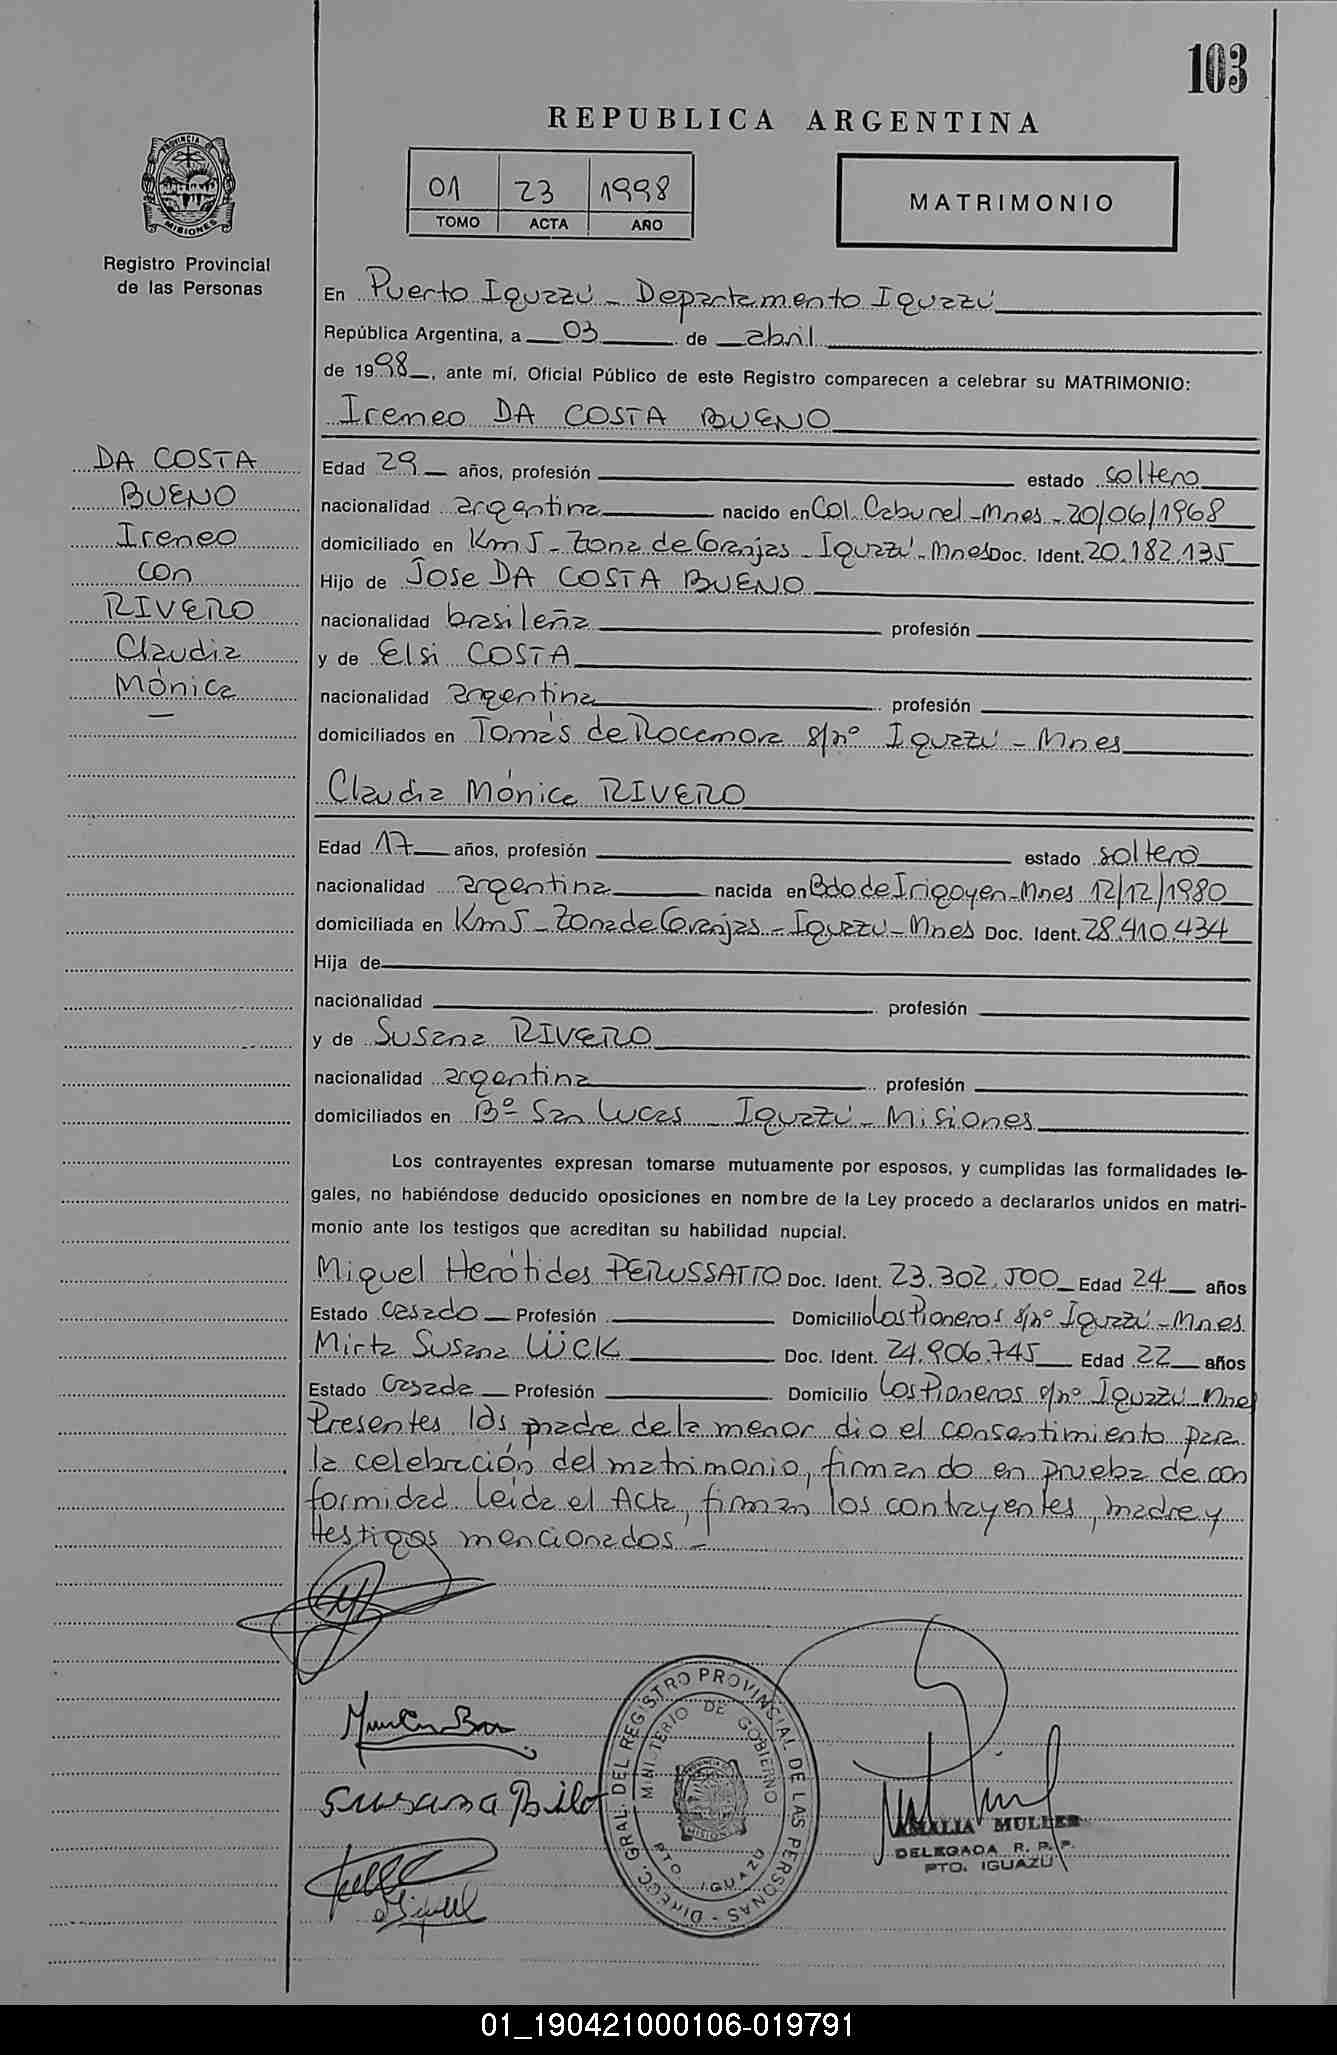 103
REPUBLICA ARGENTINA
PROVINCIA DE MISIONES
Registro Provincial
de las Personas
01 23 1998
TOMO ACTA AÑO
MATRIMONIO
En Puerto Iguazú - Departamento Iguazú
República Argentina, a 03 de abril
de 1998, ante mí, Oficial Público de este Registro comparecen a celebrar su MATRIMONIO:
Ireneo DA COSTA BUENO
DA COSTA
BUENO
Ireneo
con
RIVERO
Claudia
Mónica
Edad 29 años, profesión estado soltero
nacionalidad argentina nacido en Col. Cabureí - Mnes - 20/06/1968
domiciliado en Km 5 - Zona de Granjas - Iguazú - Mnes Doc. Ident. 20.182.135
Hijo de Jose DA COSTA BUENO
nacionalidad brasileña profesión
y de Elsi COSTA
nacionalidad argentina profesión
domiciliados en Tomás de Rocamora s/nº Iguazú - Mnes
Claudia Mónica RIVERO
Edad 17 años, profesión estado soltera
nacionalidad argentina nacida en Bdo de Irigoyen - Mnes 12/12/1980
domiciliada en Km 5 - Zona de Granjas - Iguazú - Mnes Doc. Ident. 28.410.434
Hija de
nacionalidad profesión
y de Susana RIVERO
nacionalidad argentina profesión
domiciliados en Bº San Lucas - Iguazú - Misiones
Los contrayentes expresan tomarse mutuamente por esposos, y cumplidas las formalidades le-
gales, no habiéndose deducido oposiciones en nombre de la Ley procedo a declararlos unidos en matri-
monio ante los testigos que acreditan su habilidad nupcial.
Miguel Herótides PERUSSATTO Doc. Ident. 23.302.500 Edad 24 años
Estado casado Profesión Domicilio Los Pioneros s/nº Iguazú - Mnes
Mirta Susana LÜCK Doc. Ident. 24.906.745 Edad 22 años
Estado casada Profesión Domicilio Los Pioneros s/nº Iguazú - Mnes
Presentes la madre de la menor dio el consentimiento para
la celebración del matrimonio, firmando en prueba de con
formidad. Leída el Acta, firman los contrayentes, madre y
testigos mencionados -
DIRECC. GRAL. DEL REGISTRO PROVINCIAL DE LAS PERSONAS
MINISTERIO DE GOBIERNO
PTO. IGUAZU
Susana
Miguel
AMALIA MULLER
DELEGADA R. P. P.
PTO. IGUAZU
01_190421000106-019791